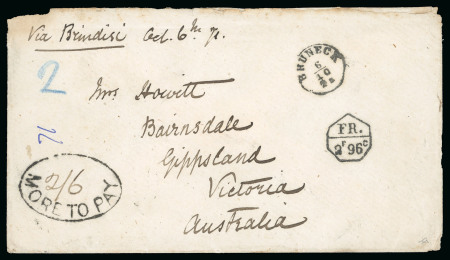 Via Brindisi Oct. 6th 71.
BRUNECK
6/10
2
Mrs Howitt
Bairnsdale
FR.
2F 96c
Gippsland
2/6
MORE TO PAY
Victoria
Australia